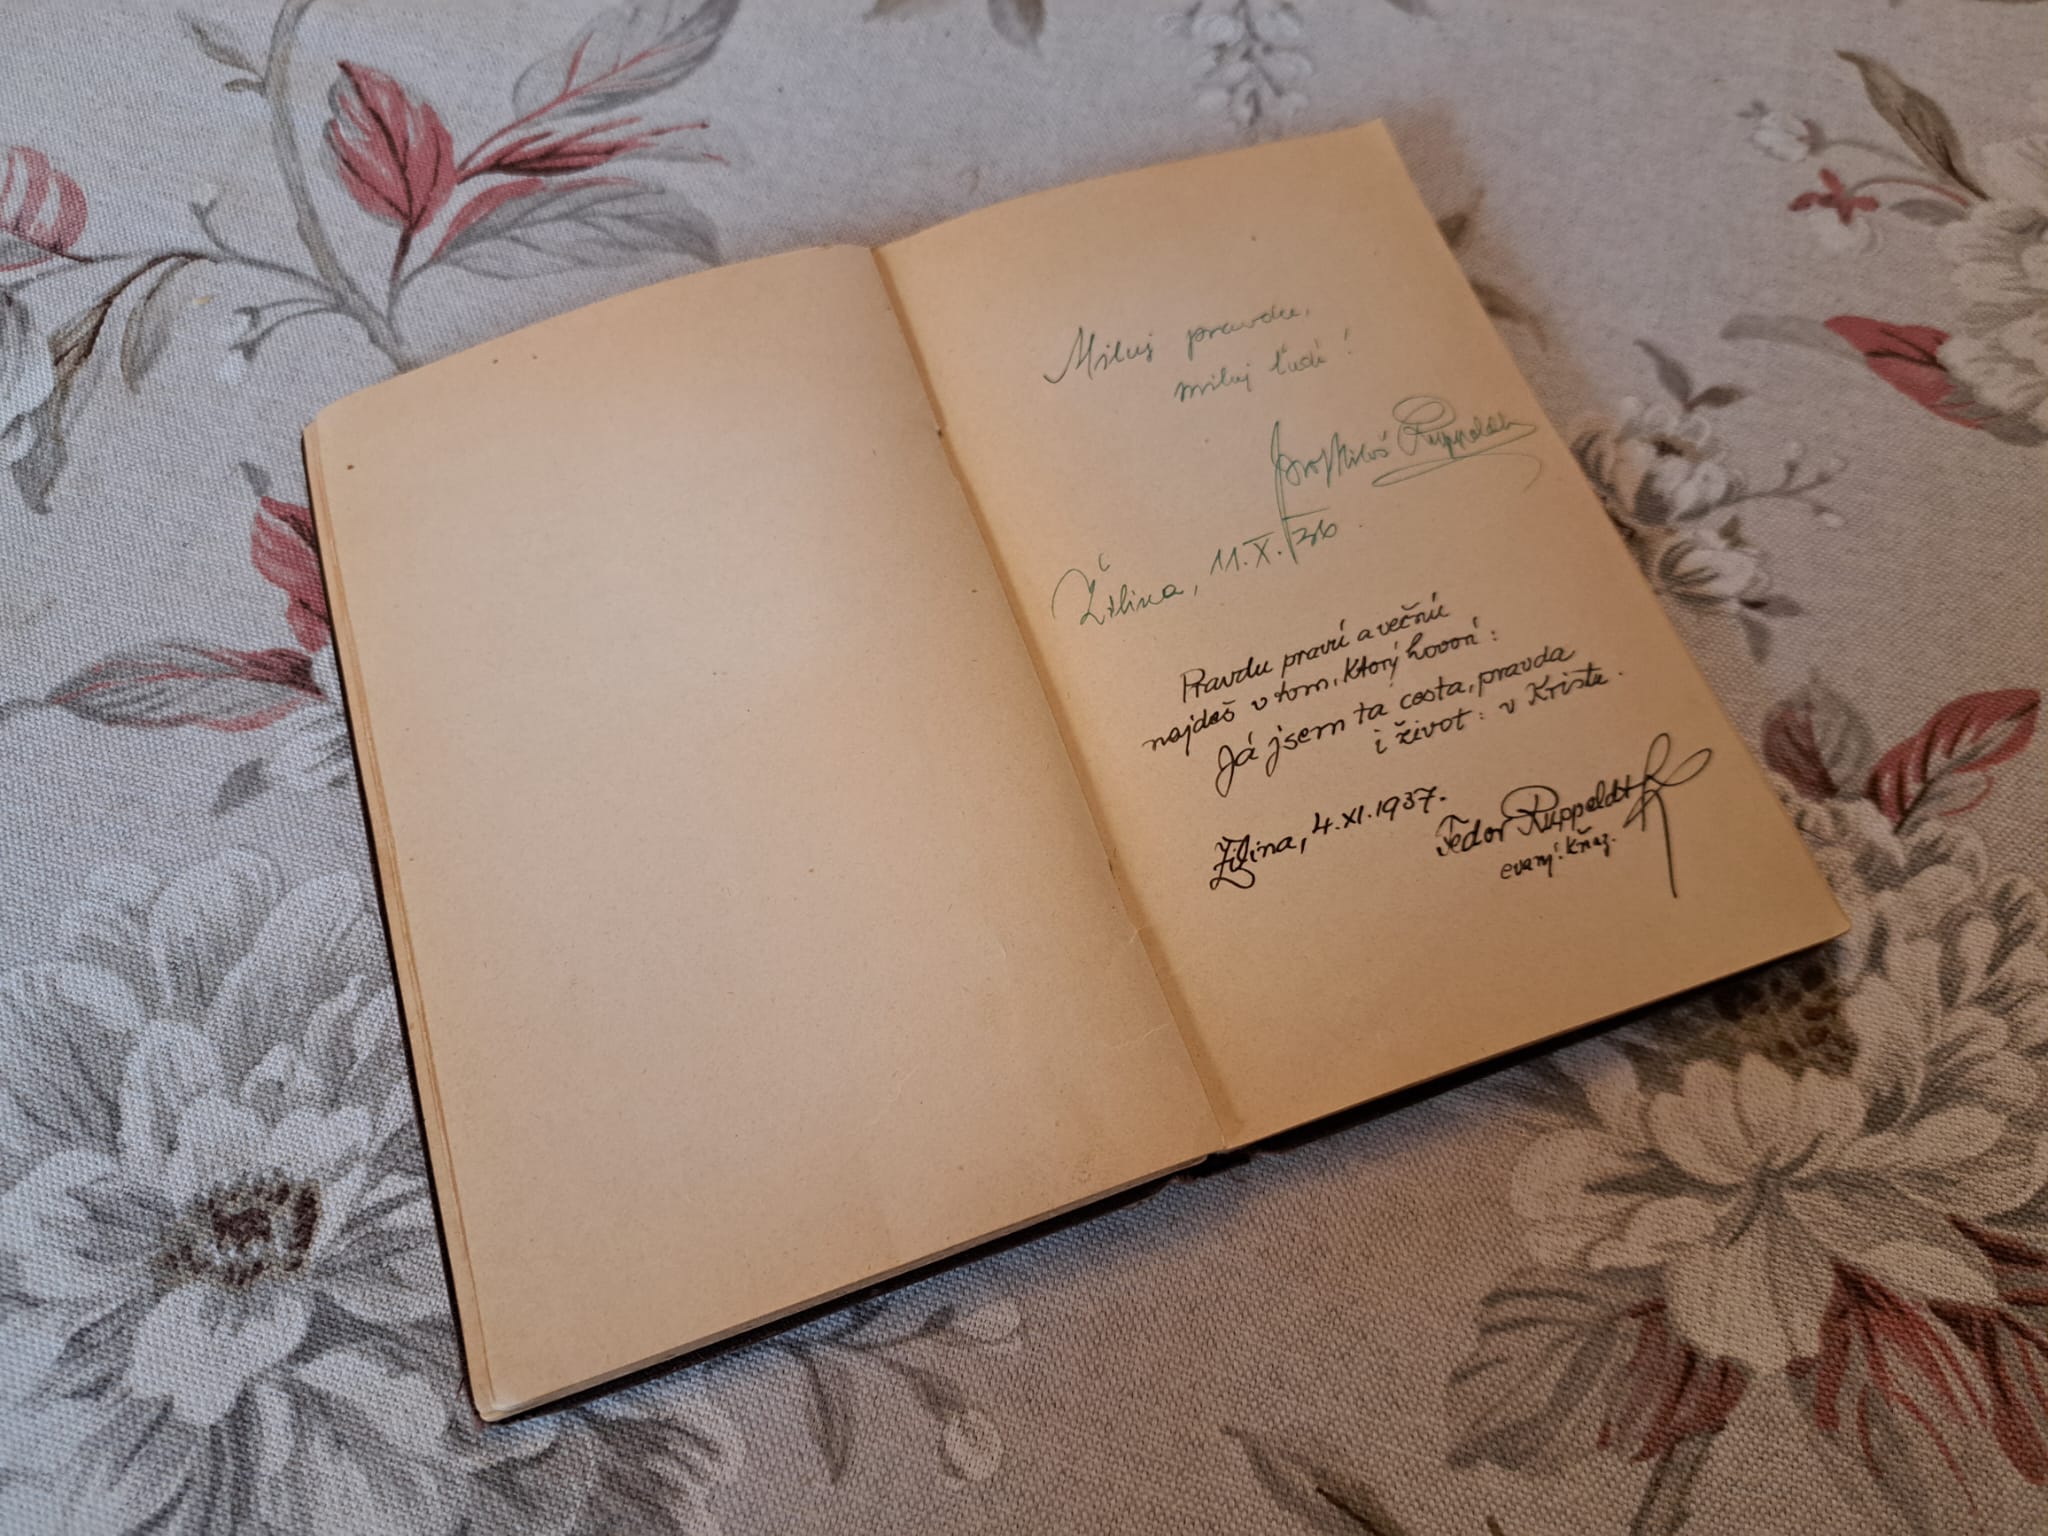 Miluj pravdu,
miluj ľudí!
prof Miloš Ruppeldt
Žilina, 11.X.36.
Pravdu pravú a večnú
najdeš v tom, ktorý hovorí:
Já jsem ta cesta, pravda
i život: v Kristu.
Žilina, 4.XI.1937.
Fedor Ruppeldt
evanj. kňaz.